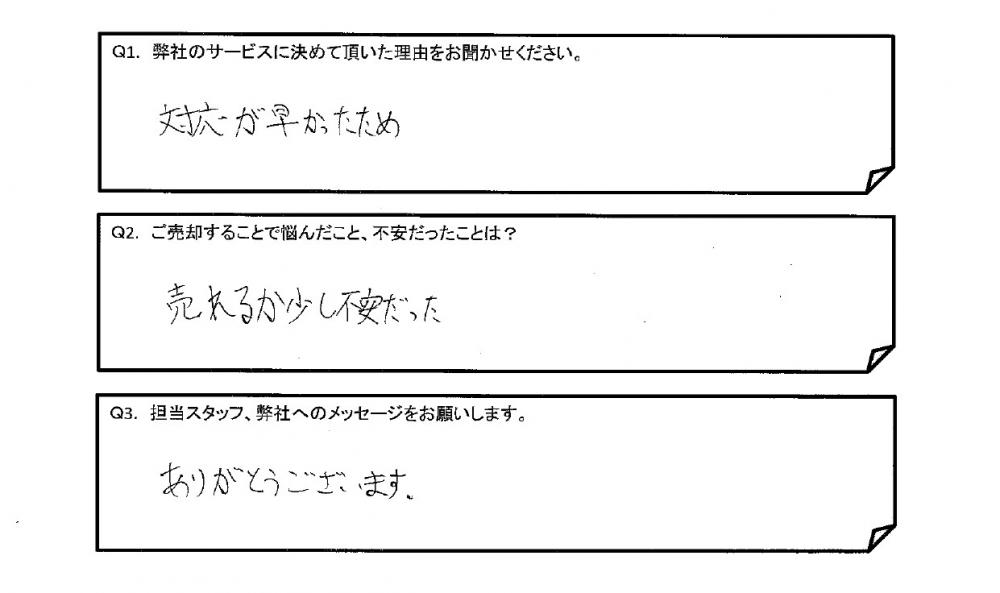 Q1. 弊社のサービスに決めて頂いた理由をお聞かせください。
対応が早かったため
Q2. ご売却することで悩んだこと、不安だったことは？
売れるか少し不安だった
Q3. 担当スタッフ、弊社へのメッセージをお願いします。
ありがとうございます。